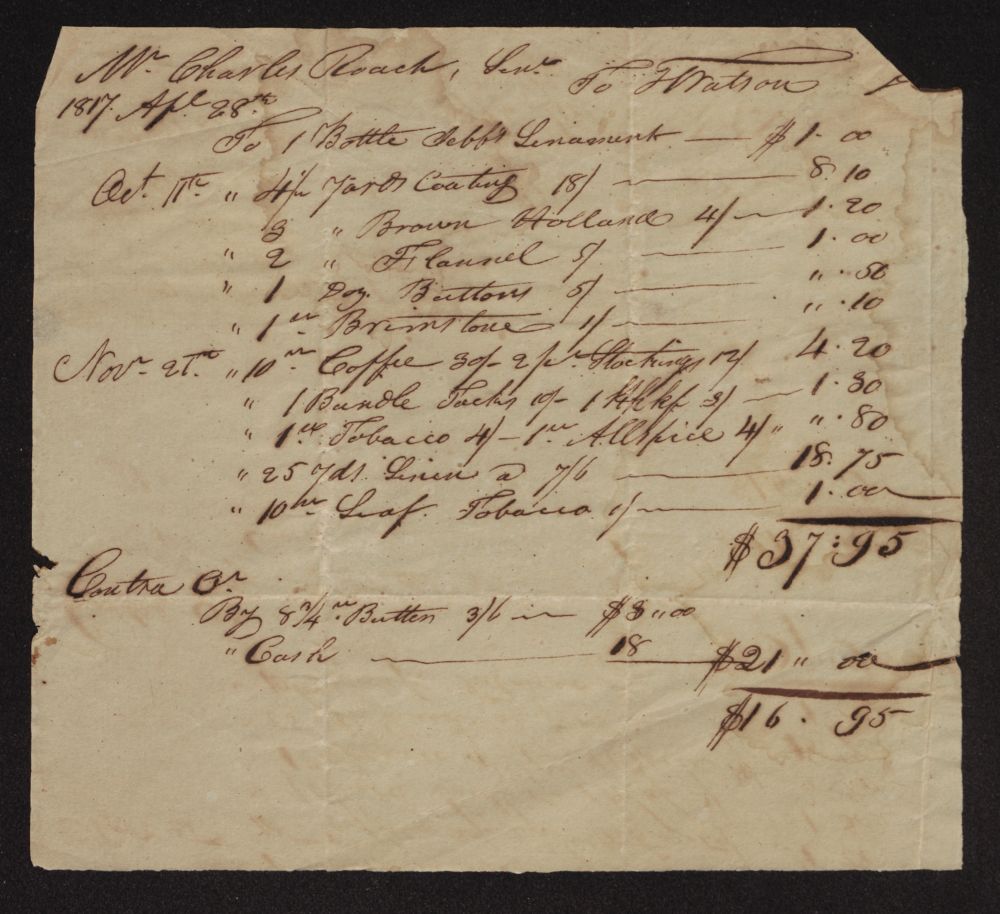 Mr. Charles Roach, Senr. To J Watson
1817. Apl. 28th
To 1 Bottle Jebb's Linament — $1.00
Oct. 11th " 4½ Yards Coating 18/ — 8.10
3 " Brown Holland 4/ — 1.20
" 2 " Flannel 5/ — 1.00
" 1 Doz. Buttons 5/ — ".50
" 1 lb Brimstone 1/ — ".10
Novr. 21st " 10 lb Coffee 30/- 2 pr. Stockings 12/ 4.20
" 1 Bundle Tacks 10/- 1 Hhkf 3/ — 1.30
" 1 lb Tobacco 4/ - 1 lb Allspice 4/ " ".80
" 25 Yds. Linen a 7/6 — 18.75
" 10 lb Leaf Tobacco 1/ — 1.00
$37:95
Contra Cr.
By 8¾ lb Butter 3/6 — $3"00
" Cash — 18 $21 " 00
$16.95